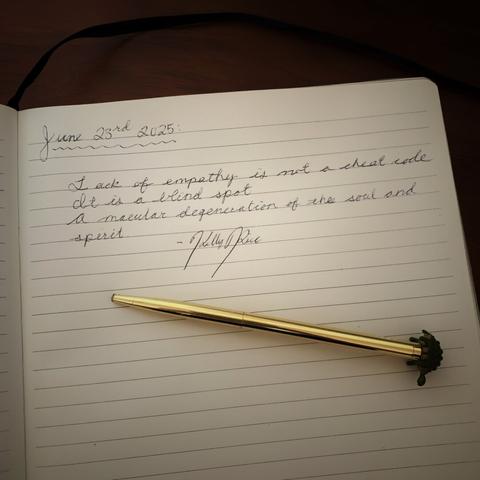 June 23rd 2025:
Lack of empathy is not a cheat code
It is a blind spot
A macular degeneration of the soul and
sperit